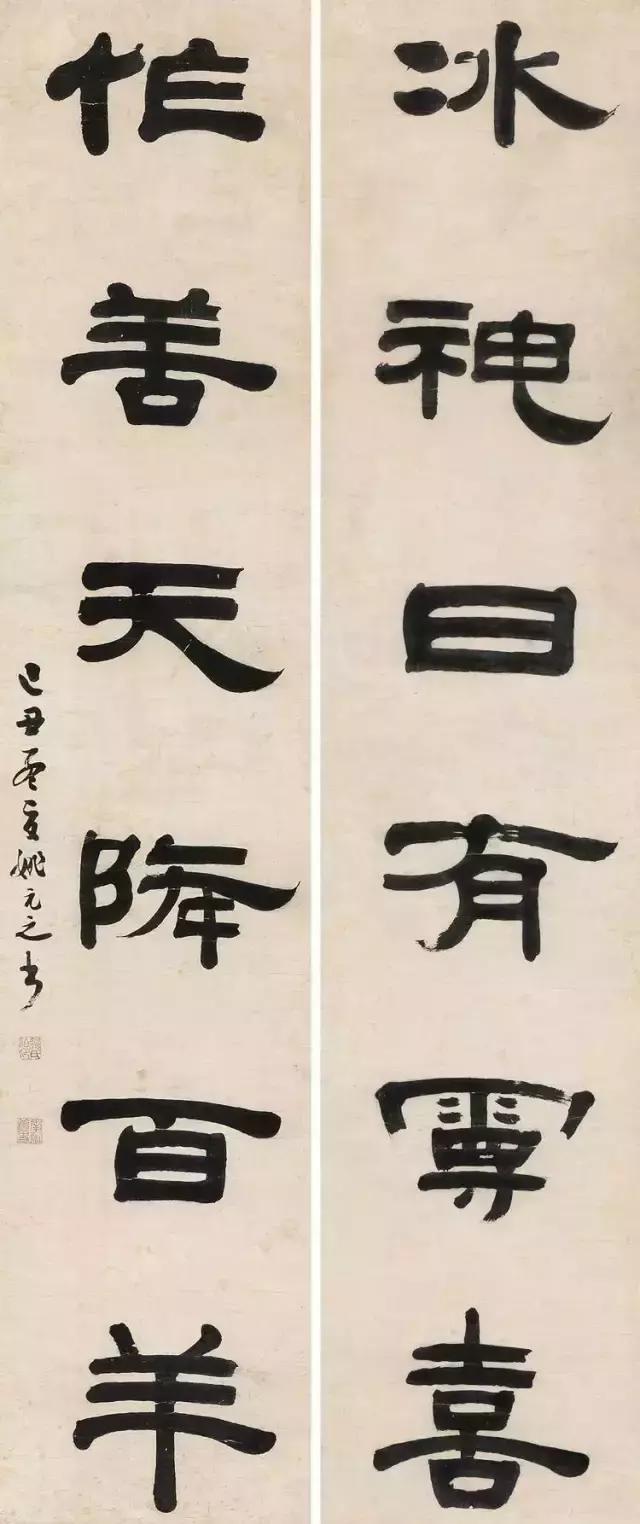 冰神日有喜
作善天降百羊
己丑 姚元之書